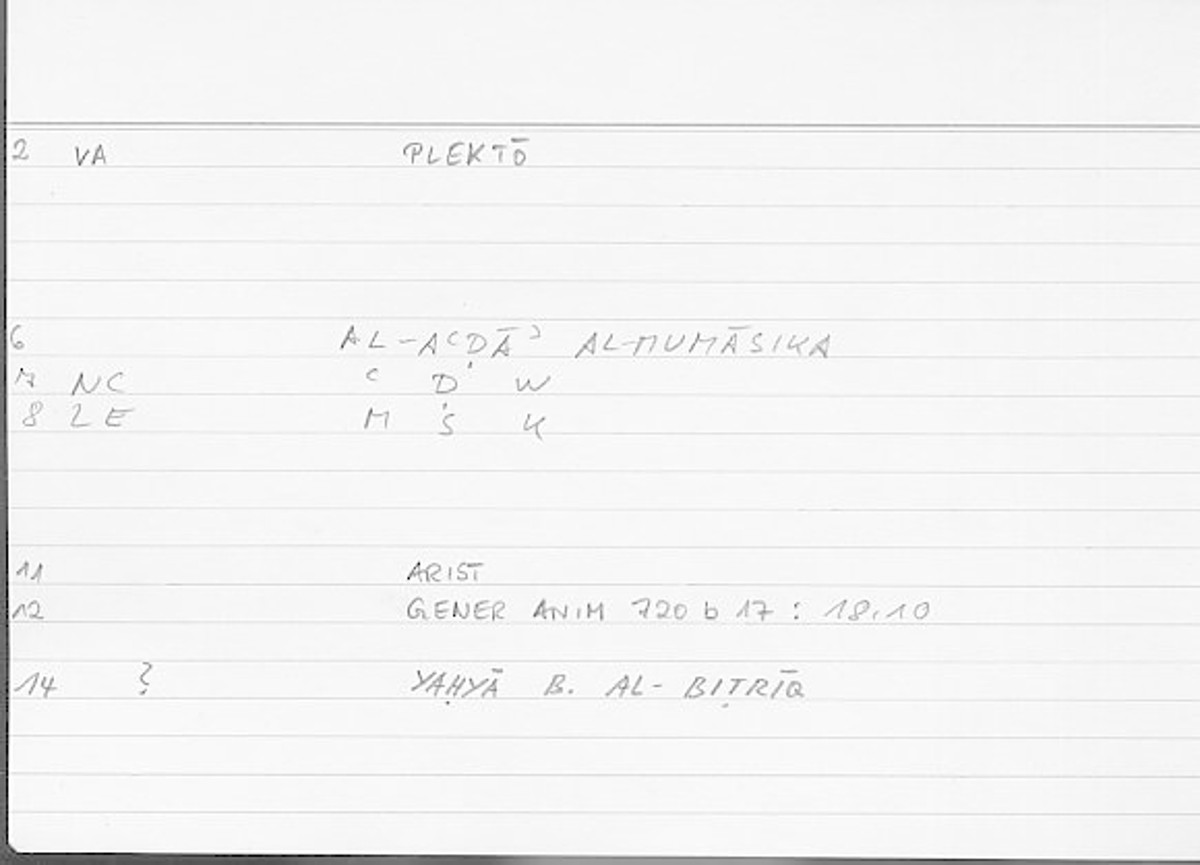 2 VA PLEKTŌ
6 AL-AʿḌĀʾ AL-MUMĀSIKA
7 NC ʿ Ḍ W
8 LE M S K
11 ARIST
12 GENER ANIM 720 b 17 : 18,10
14 ? YAḤYĀ B. AL-BIṬRĪQ